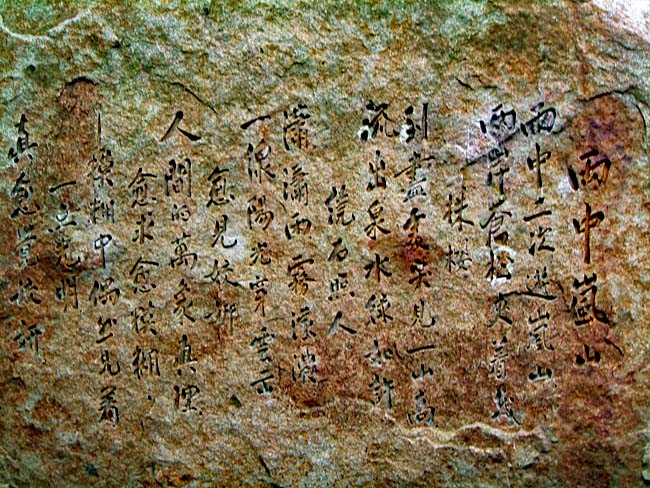 雨中嵐山
雨中二次遊嵐山
兩岸蒼松夾着幾
株櫻
到盡處突見一山高
流出泉水綠如許
繞石照人
瀟瀟雨霧濛濃
一線陽光穿雲出
愈見姣妍
人間的萬象真理
愈求愈模糊
—模糊中偶然見着
一点光明
真愈覺姣妍